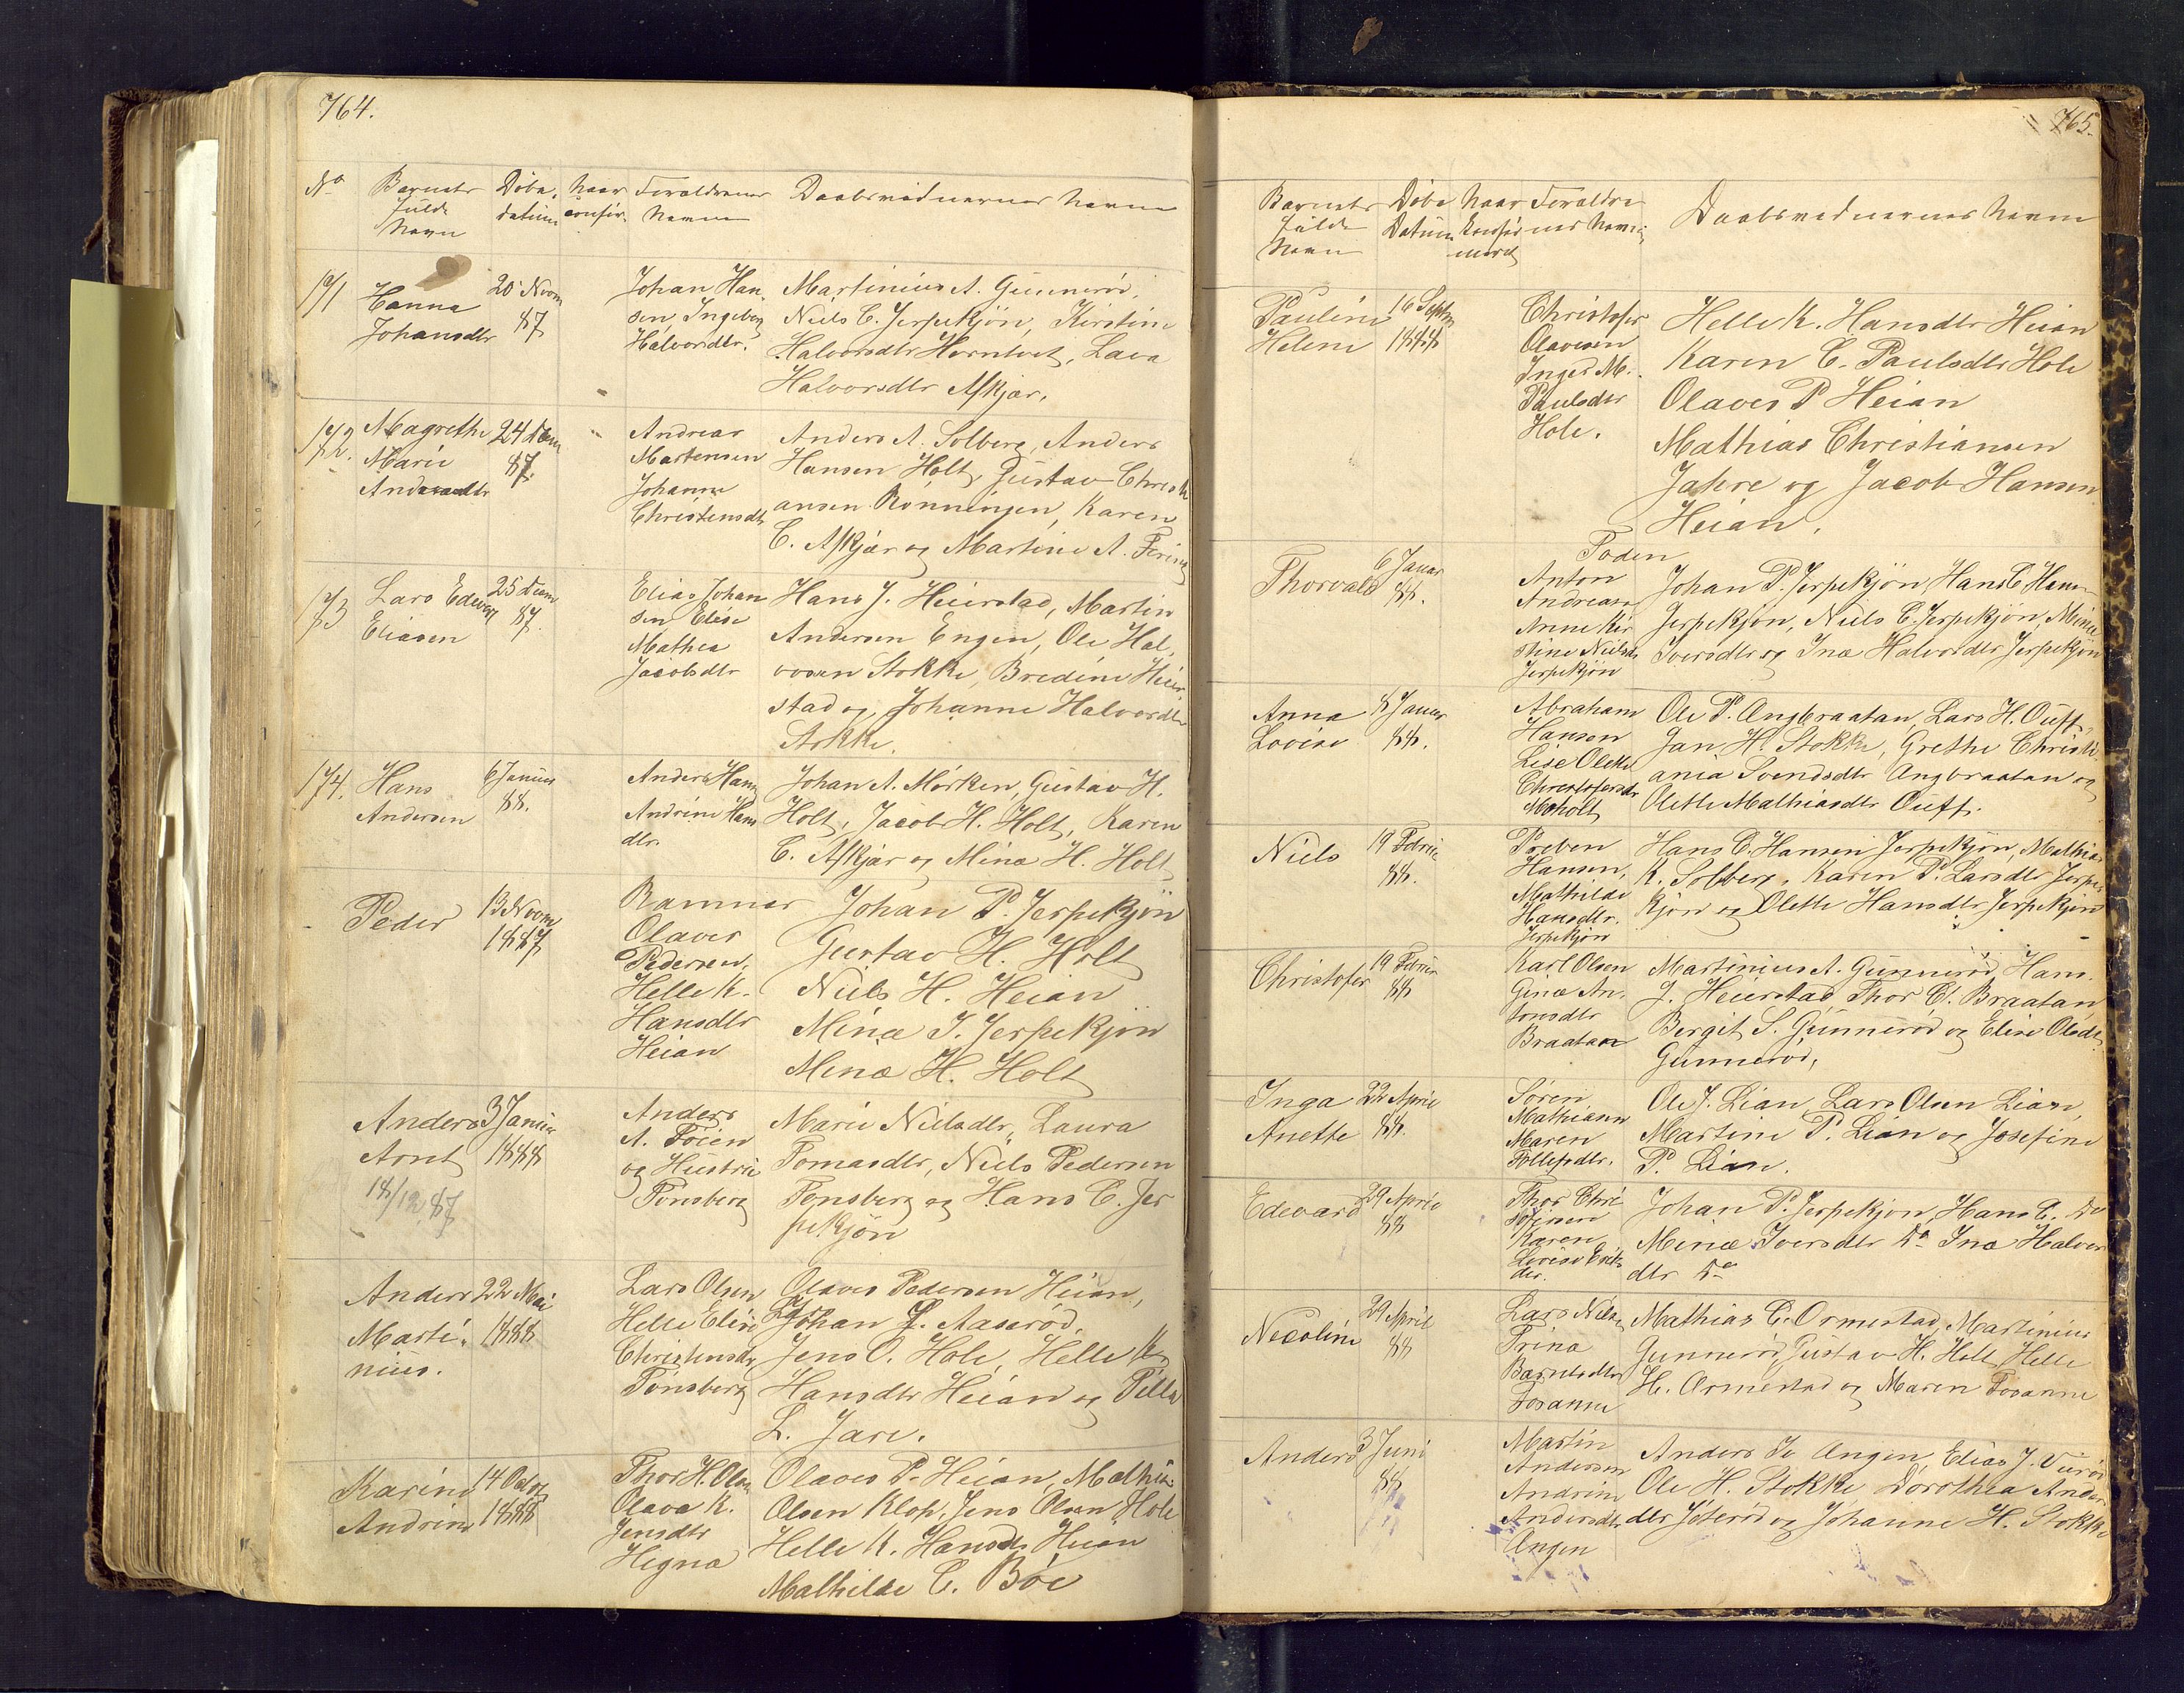 764.
No Barnets fulde Navn
Døbe datum
Naar confir.
Foreldrenes Navne
Daabsvidnernes Navne
171
Hanna Johansdtr
20 Novm 87
Johan Han-
sen Ingeborg
Halvorsdtr.
Martinius A. Gunnerød,
Niels C. Jerpekjøn, Kirstine
Halvorsdtr Horntvet, Lava
Halvorsdtr Askjær.
172.
Magrethe
Marie
Andreasdtr
24 Decm
87.
Andreas
Martensen
Johanne
Christensdtr
Anders A. Solberg, Anders
Hansen Holt, Gustav Christi
ansen Rønningen, Karen
C. Askjær og Martine A.
173
Lars Edvard
Eliasen
25 Decm
87.
Elias Johan
sen Elise
Mathea
Jacobsdtr
Hans J. Heierstad, Martin
Andersen Engen, Ole Hal-
vorsen Stokke, Bredine Heier-
stad og Johanne Halvorsdtr
Stokke.
174.
Hans
Andersen
6 Januar
88.
Anders Hans
Andrine Hans
dtr.
Johan A. Mørken, Gustav H.
Holt, Jacob H. Holt, Karen
C. Askjær og Mina H. Holt
Peder
13 Novm
1887
Olaves
Pedersen,
Helle K.
Hansdtr
Heian
Johan P. Jerpekjøn
Gustav H. Holt
Niels H. Heian
Mina I. Jerpekjøn
Mina H. Holt
Anders
Arnt
18/12 87
3 Januar
1888
Anders
A. Foien
og Hustru
Tønsberg
Marie Nielsdtr, Laura
Tomasdtr, Niels Pedersen
Tønsberg og Hans C. Jer
pekjøn
Anders
Marti-
nius.
22 Mai
1888
Lars Olsen
Helle Elise
Christensdtr
Tønsberg
Olaves Pedersen Heian,
Johan L. Aaserød,
Jens O. Hole, Helle K
Hansdtr Heian og Pella
L. Jare.
Karine
Andrine
14 Octor
1888
Thor H. Olsen
Olava K.
Jensdtr
Hegna
Olaves P. Heian, Mathias
Olsen Klop, Jens Olsen Hole
Helle K. Hansdtr Heian
Mathilde C. Böe
765.
Barnets fulde Navn
Døbe Datum
Naar Konfir meret
Foreldre nes Navne
Daabsvidnernes Navne
Pauline
Helene
16 Septm
1888
Christofer
Olavesen
Inged M.
Paulsdtr
Hole.
Helle K. Hansdtr Heian
Karen C. Paulsdtr Hole
Olaves P Heian
Mathias Christiansen
Jahre og Jacob Hansen
Heian.
Thorvald
6 Januar
88.
Anton
Andreasen
Anne Kir
stine Nielsdtr
Jerpekjøn
Johan P. Jerpekjøn, Hans C Hansen
Jerpekjøn, Niels C. Jerpekjøn, Mina
Iversdtr og Ina Halvorsdtr Jerpekjøn
Anna
Lovise
8 Januar
88.
Abraham
Hanson
Lise Olette
Christofersdtr
Moholt
Ole P. Angbraatan, Lars H. Ouff,
Jan H. Stokke, Grethe Christi
ania Svendsdtr Angbraatan og
Olette Mathiasdtr Ouff.
Niels
19 Februar
88.
Preben
Hansen,
Mathilde
Hansdtr.
Jerpekjøn
Hans C. Hansen Jerpekjøn, Mathias
K. Solberg, Karen P. Larsdtr Jerpe
kjøn og Olette Hansdtr Jerpekjøn
Christofer
19 Februar
88
Karl Olsen
Gina An-
tonsdtr
Braatan
Martinius A. Gunnerød, Hans
J. Heierstad, Thor C. Braatan,
Bergit S. Gunnerød og Elise Olsdtr
Gunnerød,
Inga
Anette
22 April
88.
Søren
Mathiasen
Maren
Tollefsdtr.
Ole J. Lian, Lars Olsen Lian,
Martine P. Lian og Josefine
P. Lian.
Edevard
29 April
88
Thor Chri
stofersen
Karen
Lovise Eriks
dtr.
Johan P. Jerpekjøn, Hans C. Do
Mina Iversdtr Do Ina Halvors
dtr Do
Nicoline
29 April
88
Lars Nilsen
Trina
Barnlsdtr
Fosanne
Mathias C. Ormestad, Martinius
Gunnerød, Gustav H. Holt, Helle
H. Ormestad og Maren Fosanne
Anders
3 Juni
88
Martin
Andersen
Andrine
Andersdtr
Angen
Anders Angen, Elias J.
Ole H. Stokke, Dorothea Anders
dtr Joterød og Johanne H. Stokke